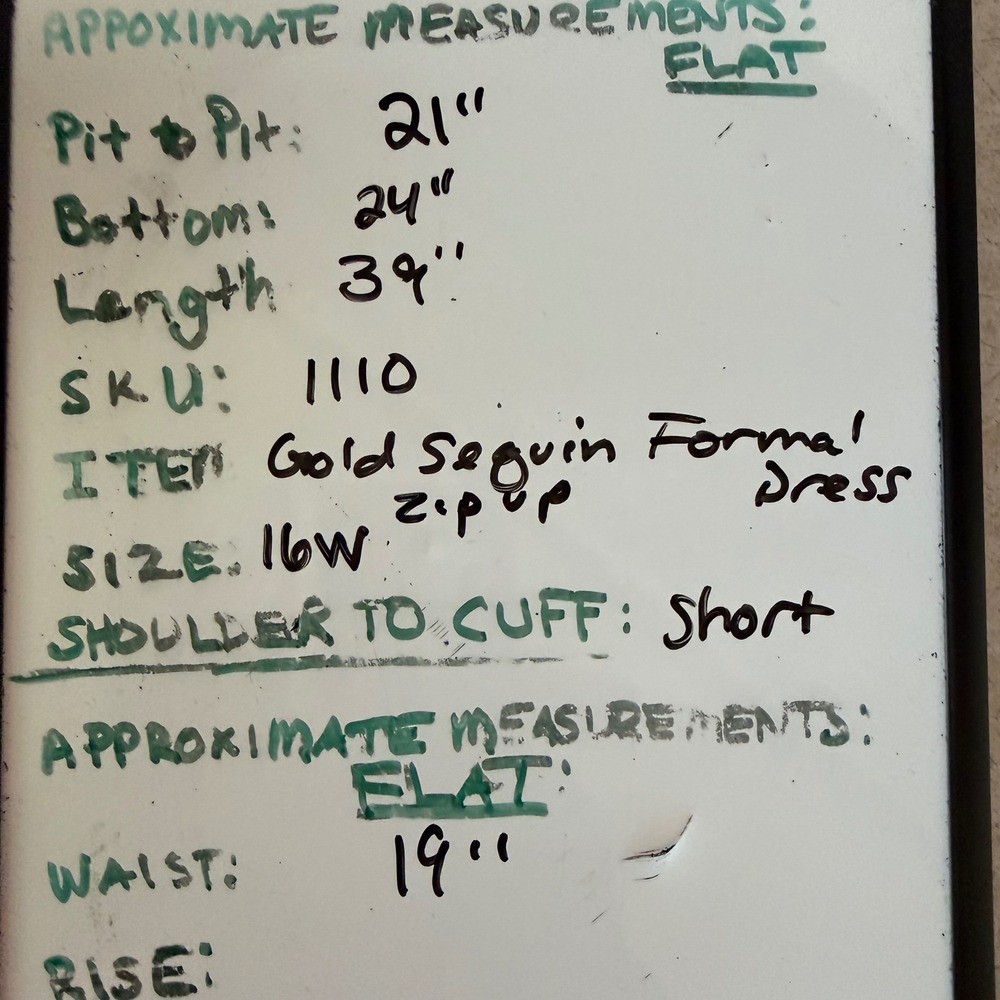 APPOXIMATE MEASUREMENTS:
FLAT
Pit to Pit: 21"
Bottom: 24"
Length 39"
SKU: 1110
ITEM Gold Sequin Formal
Zip up Dress
SIZE. 16W
SHOULDER TO CUFF: Short
APPROXIMATE MEASUREMENTS:
FLAT:
WAIST: 19"
RISE: